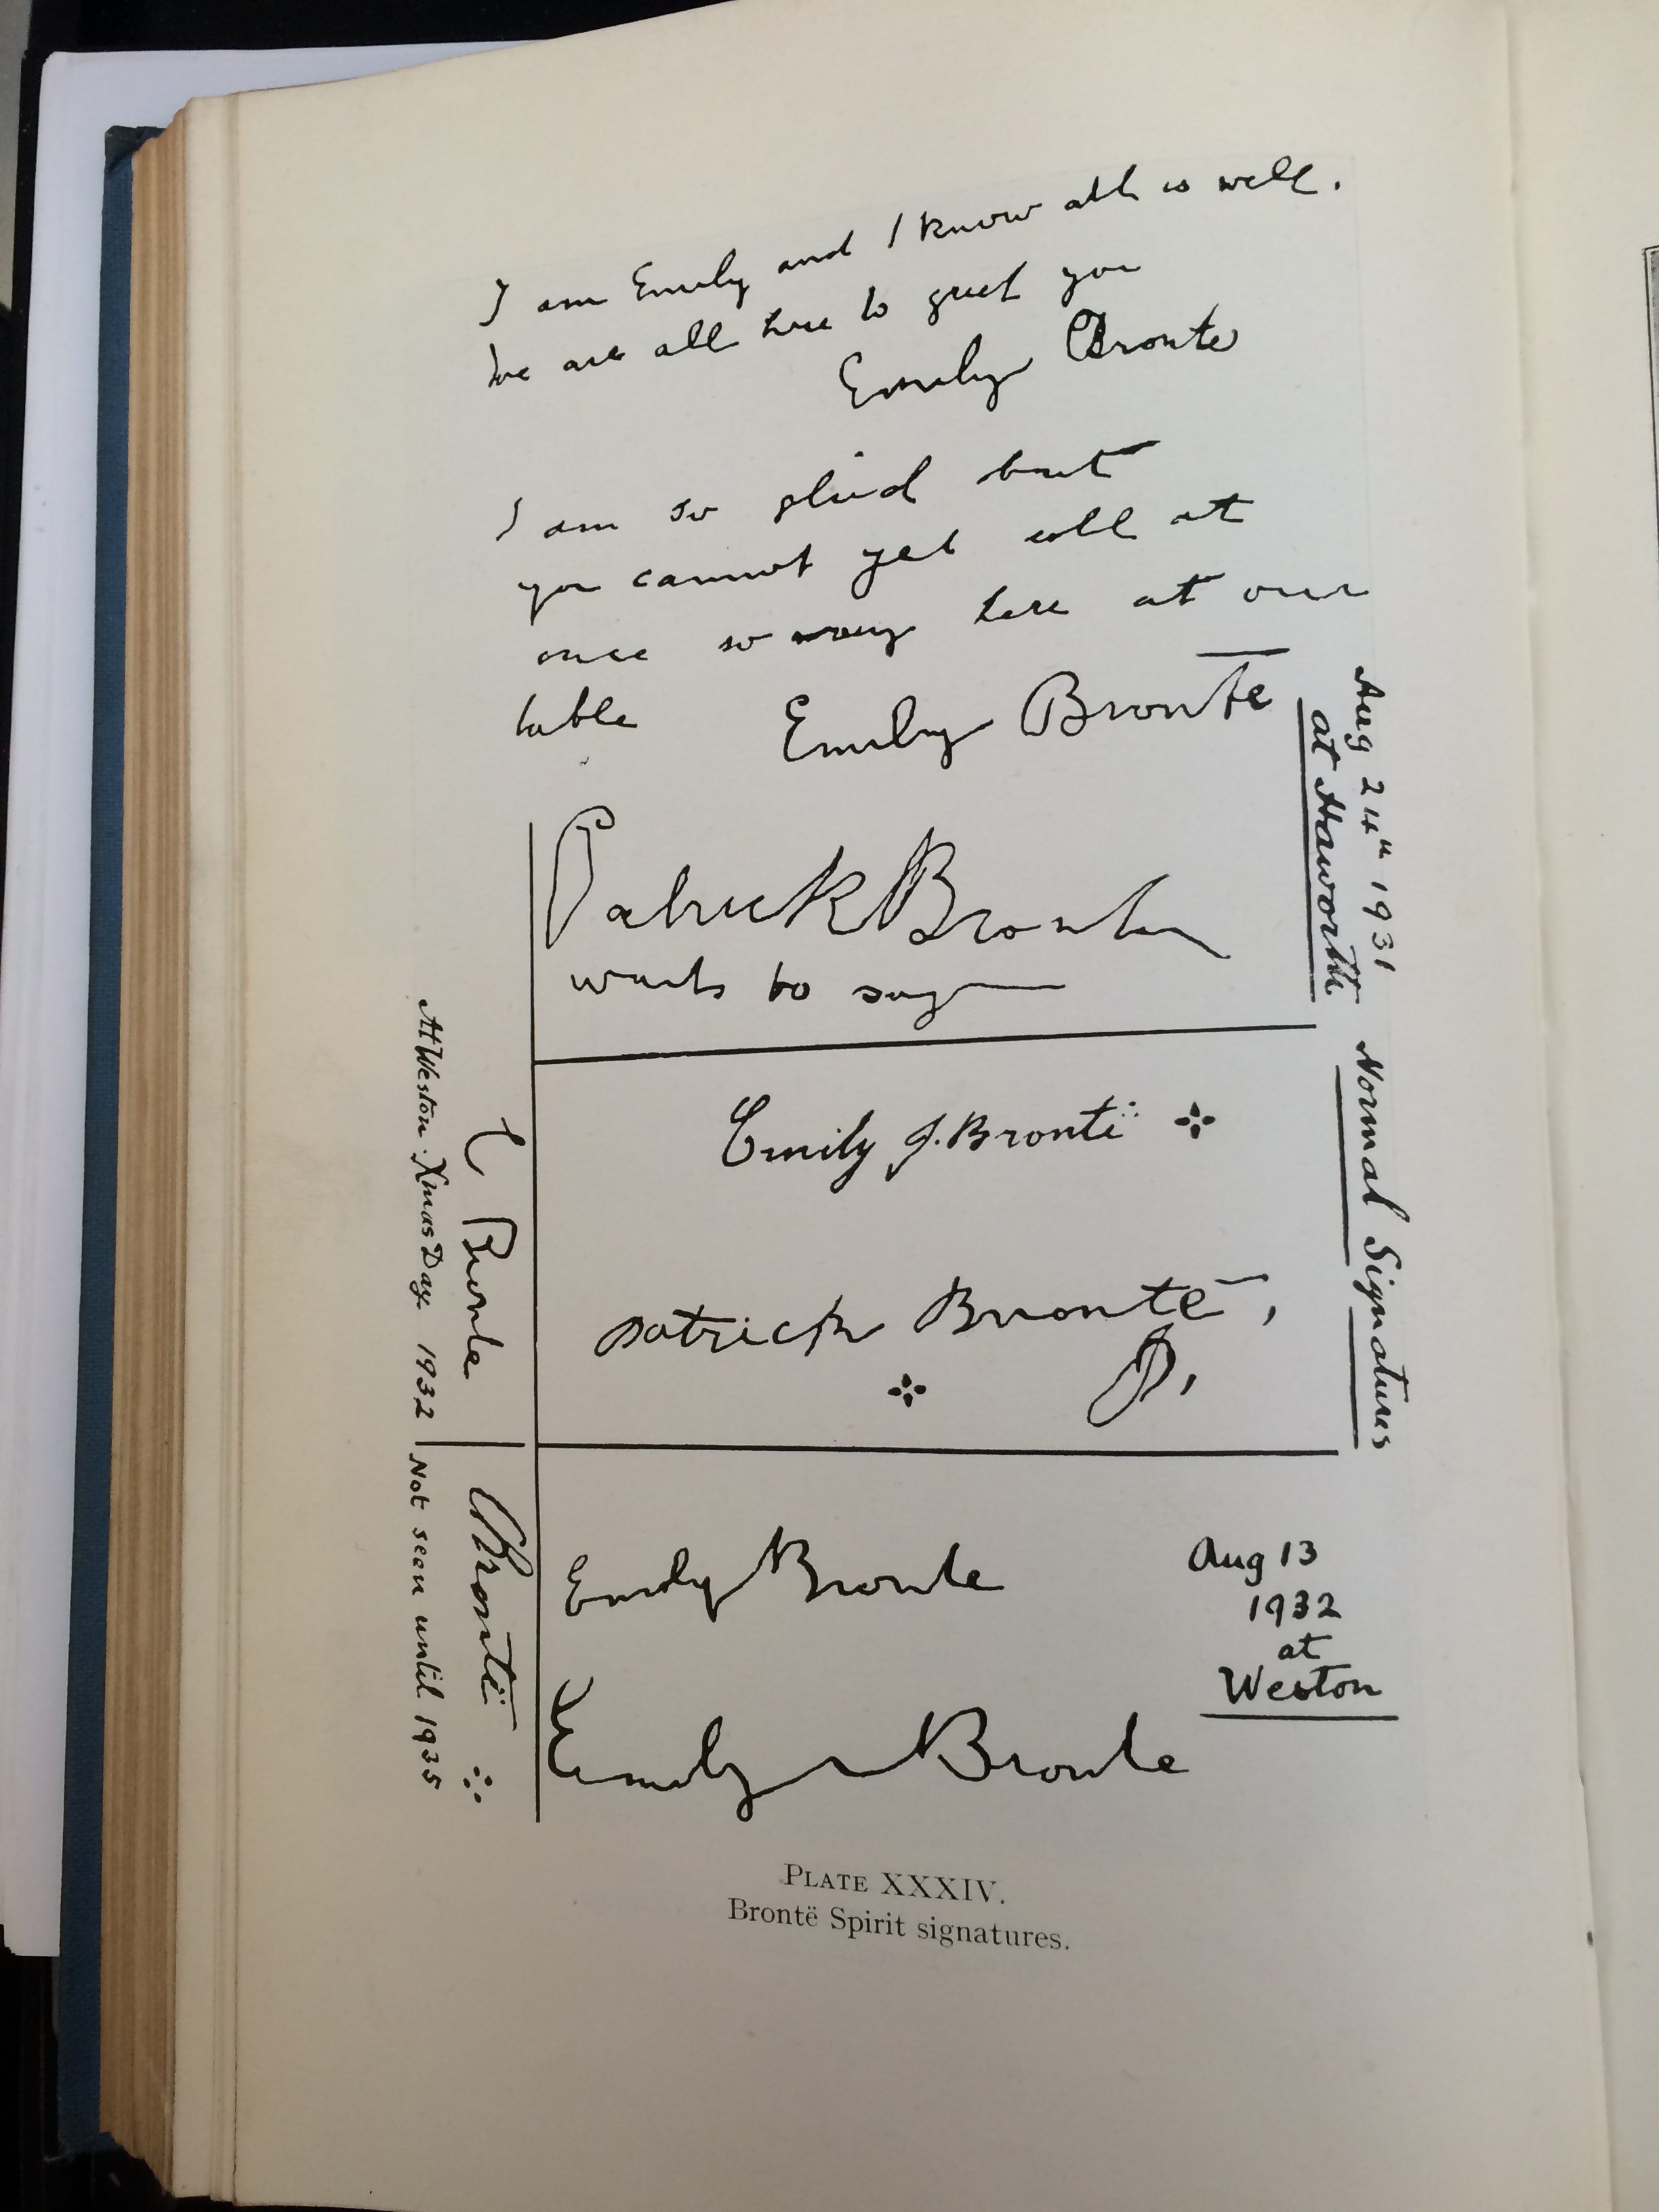 I am Emily and I know all is well.
We are all here to greet you
Emily Bronte
I am so glad but
you cannot yet call at
once so many here at our
table Emily Bronte
Aug 24th 1931
at Haworth
Patrick Bronte
wants to say
Normal Signatures
Emily J. Brontë
Patrick Bronte,
P,
E Bronte
At Weston. Xmas Day. 1932
Brontë
Not seen until 1935
Emily Bronte
Aug 13
1932
at
Weston
Emily Bronte
PLATE XXXIV.
Brontë Spirit signatures.